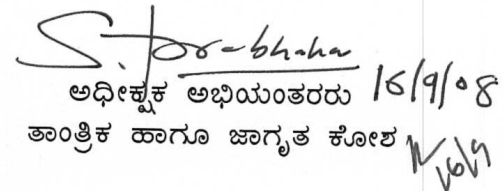 S. Prabhakar
ಅಧೀಕ್ಷಕ ಅಭಿಯಂತರರು 16/9/08
ತಾಂತ್ರಿಕ ಹಾಗೂ ಜಾಗೃತ ಕೋಶ
16/9